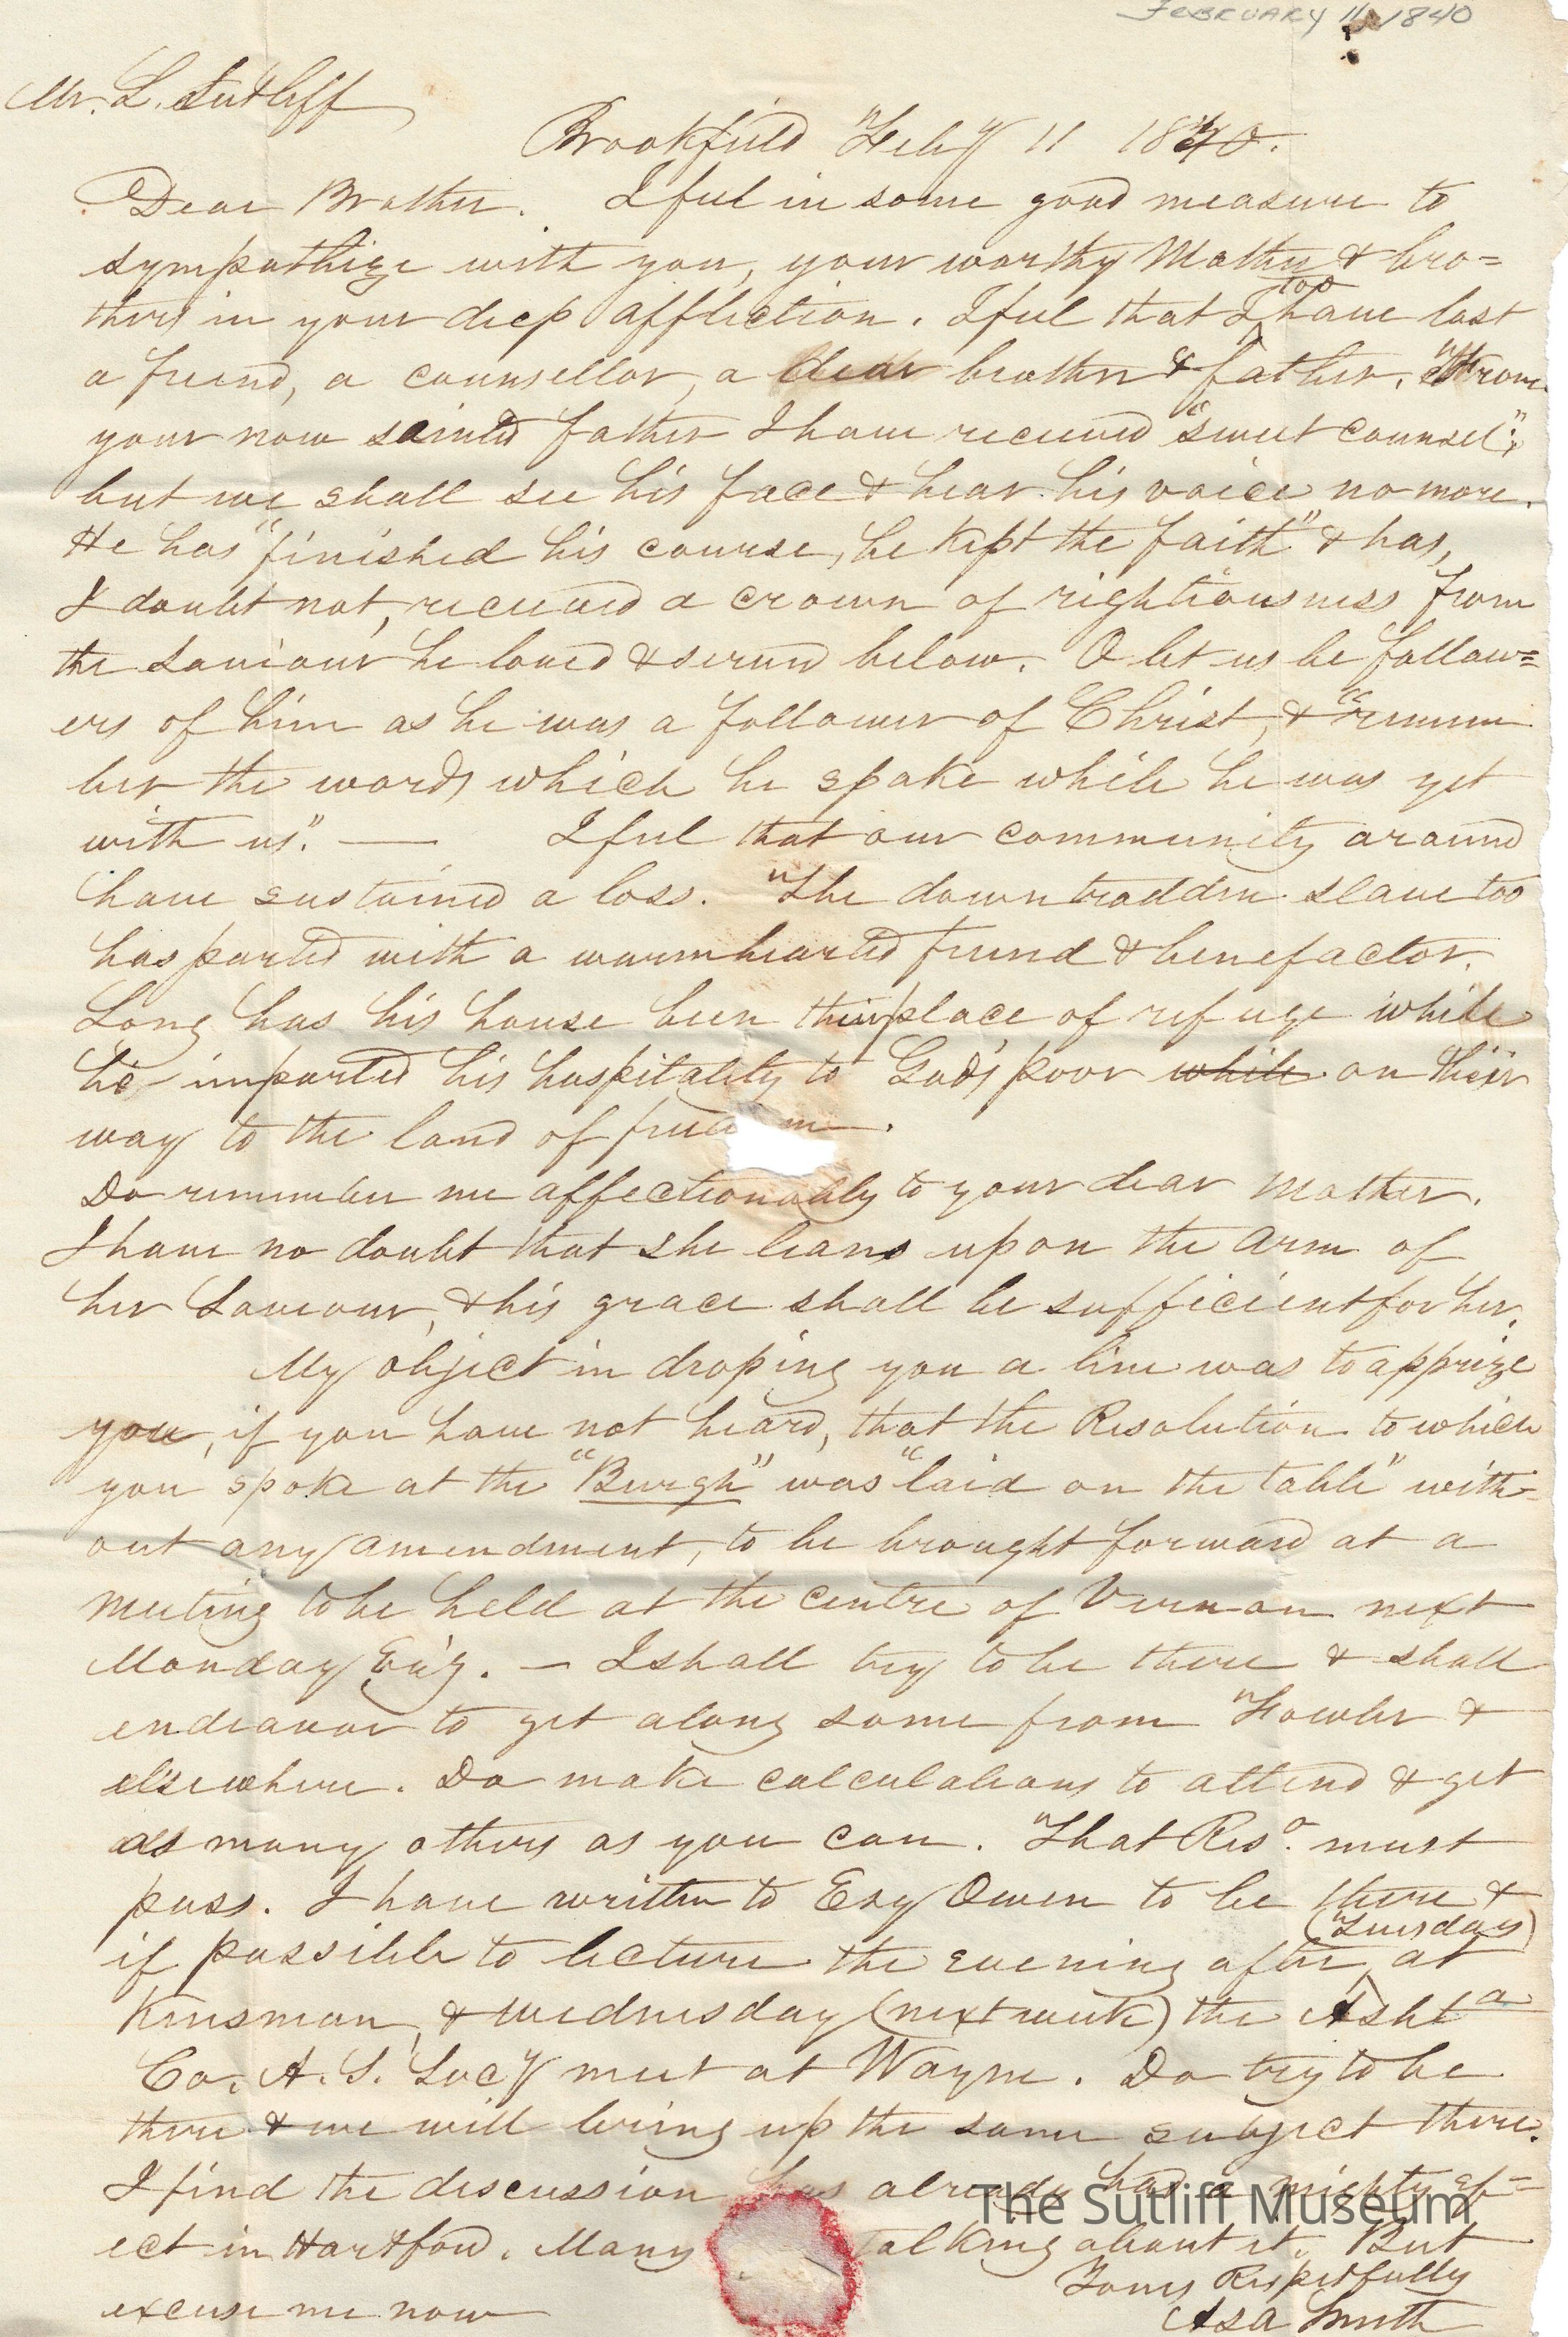 FEBRUARY 11, 1840
Mr. L. Sutliff
Brookfield Feby 11 1840.
Dear Brother. I feel in some good measure to
sympathize with you, your worthy Mother & bro=
thers in your deep affliction. I feel that I too have lost
a friend, a counsellor, a dear brother & father. From
your now sainted father I have received "sweet counsel";
but we shall see his face & hear his voice no more.
He has "finished his course, he kept the faith" & has,
I doubt not, received a crown of rightiousness from
the Saviour he loved & served below. O let us be follow=
ers of him as he was a follower of Christ, & "remem
ber the words which he spake while he was yet
with us". — I feel that our community around
have sustained a loss. The down trodden slave too
has parted with a warmhearted friend & benefactor.
Long has his house been their place of refuge while
he imparted his hospitality to God's poor while on their
way to the land of free m.
Do remember me affectionately to your dear Mother.
I have no doubt that she leans upon the arm of
her Saviour, & his grace shall be sufficient for her.
My object in droping you a line was to apprize
you, if you have not heard, that the Resolution to which
you spoke at the "Burgh" was "laid on the table" with=
out any amendment, to be brought forward at a
meeting to be held at the centre of Vernon next
Monday Ev'g. — I shall try to be there & shall
endeavor to get along some from Fowler &
elsewhere. Do make calculations to attend & get
as many others as you can. That Reso. must
pass. I have written to Esq Owen to be there &
if possible to lecture the evening after (Tuesday) at
Kinsman, & wednesday (next week) the Ashta
Co. A. S. Socy meet at Wayne. Do try to be
there & we will bring up the same subject there.
I find the discussion has already had a mighty ef=
ect in Hartford. Many talking about it. But
excuse me now
Yours Respetfully
Asa Smith
The Sutliff Museum